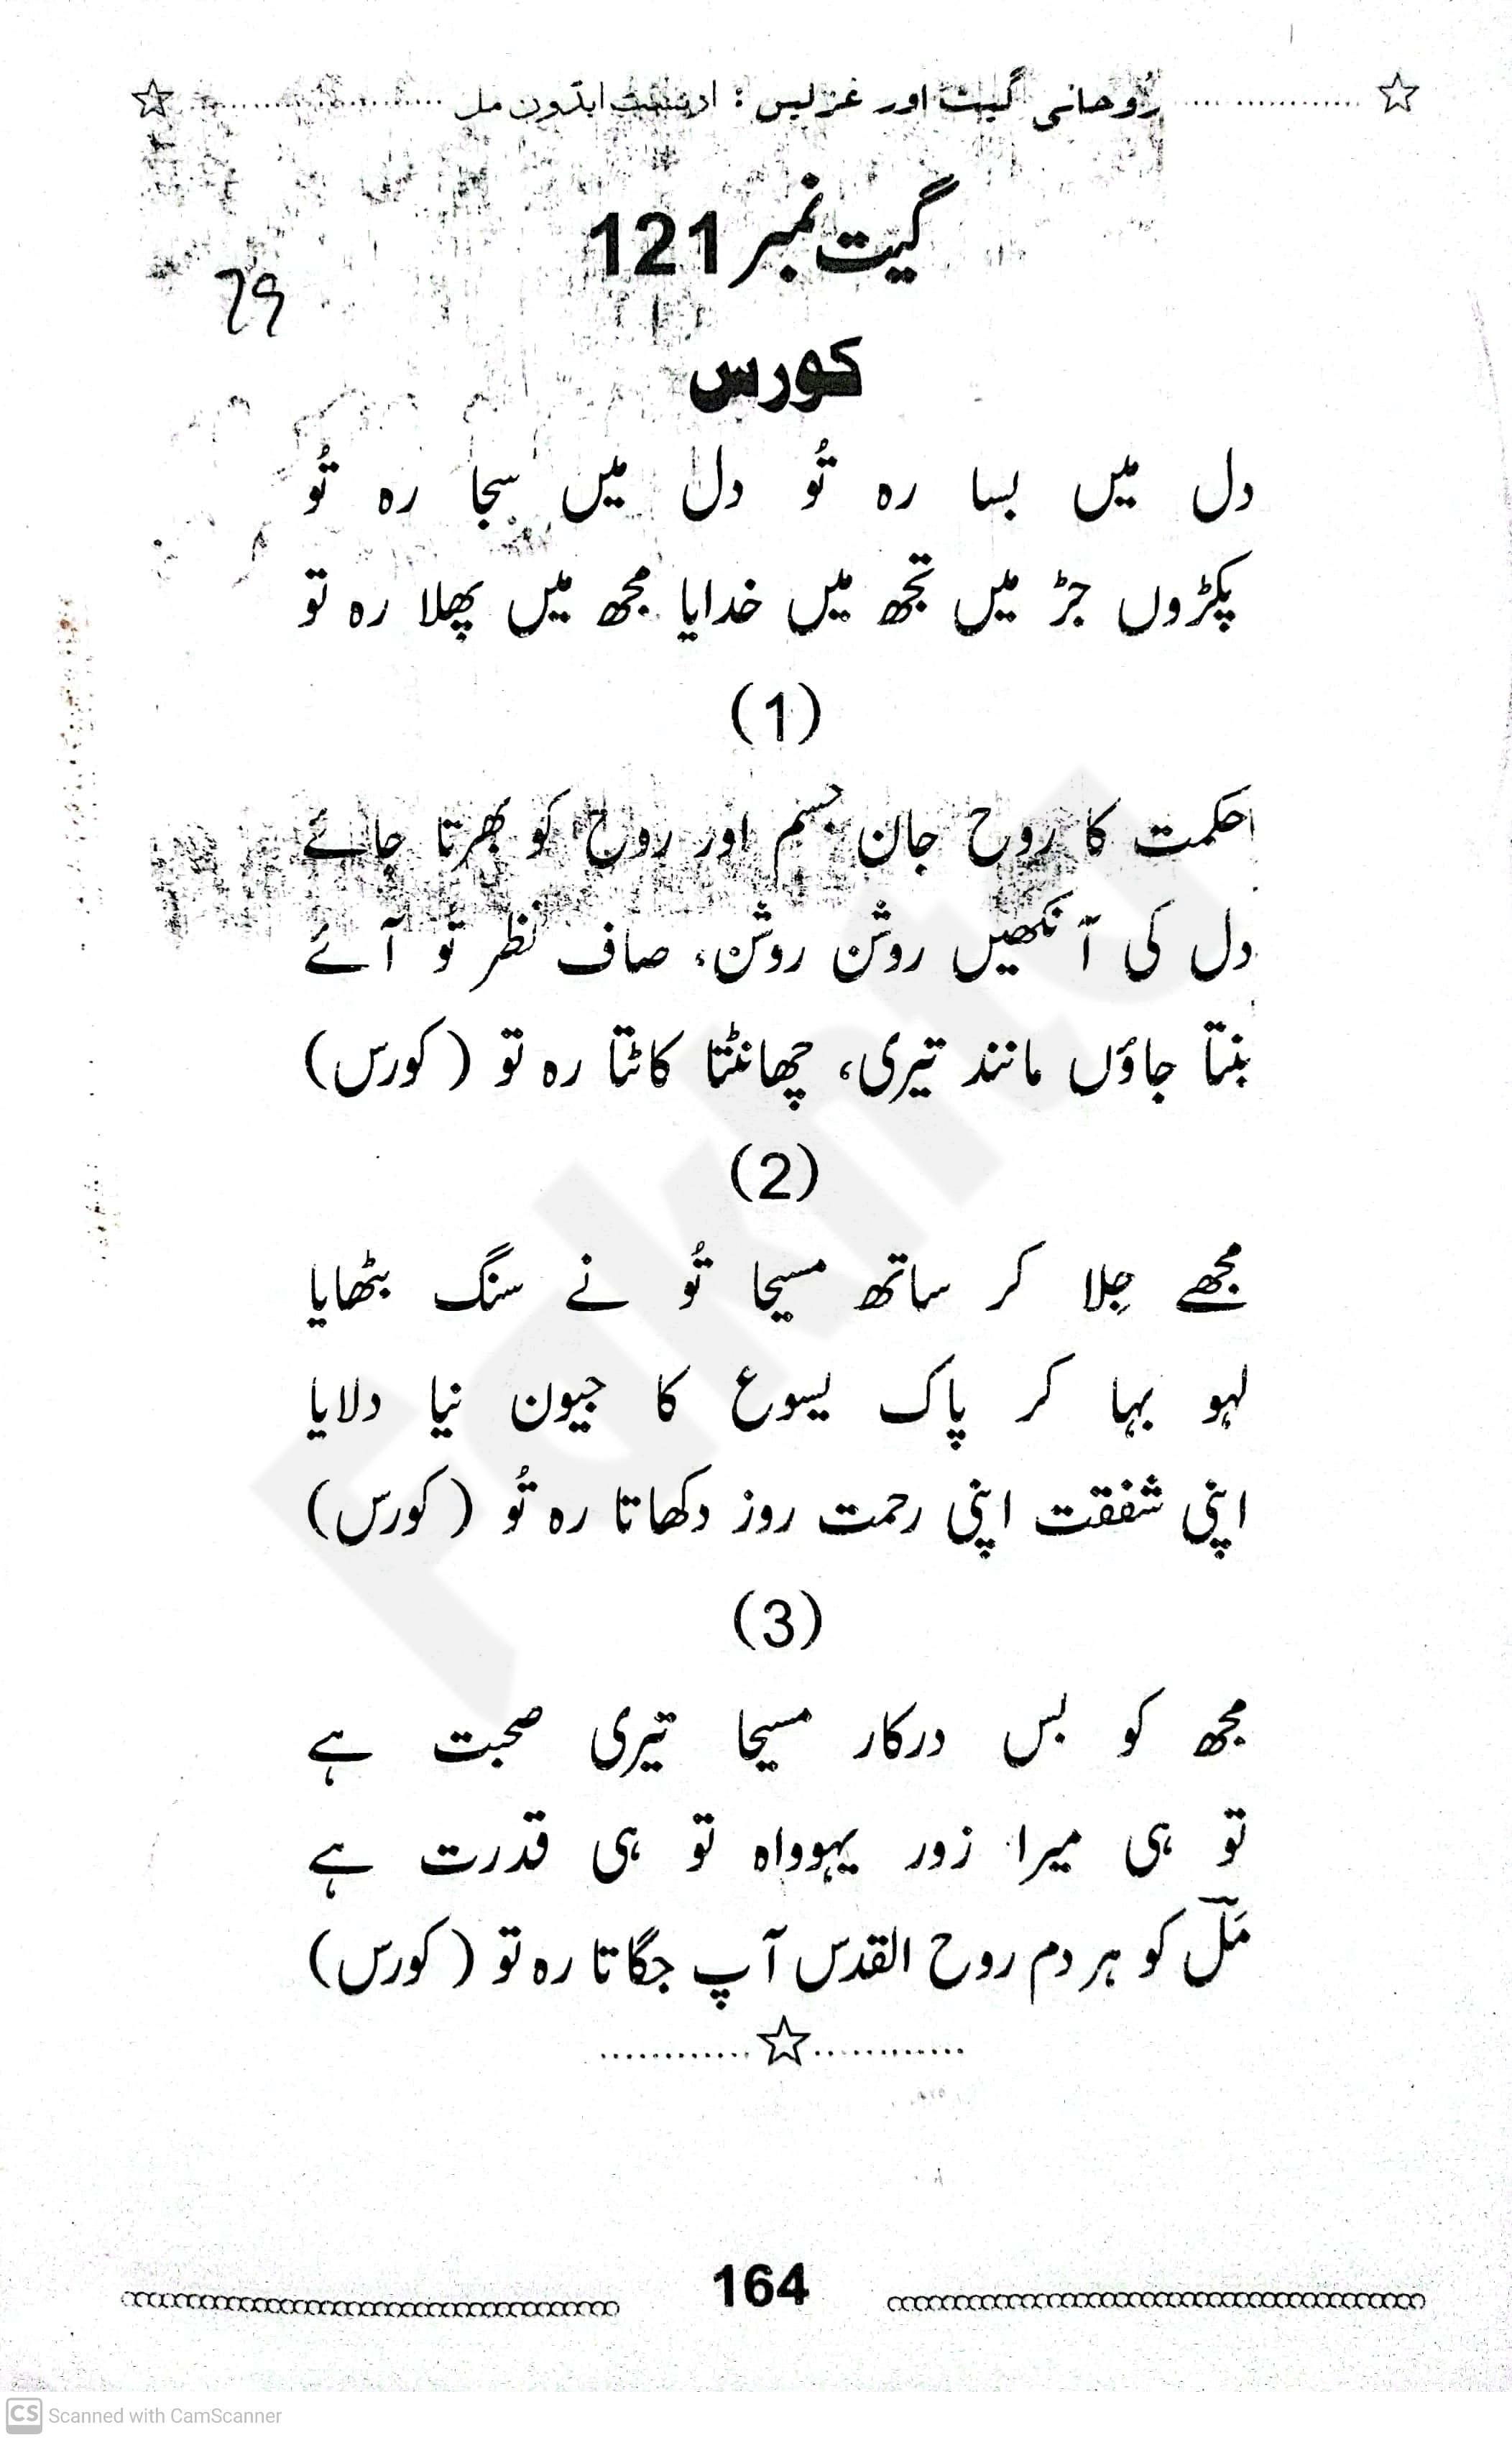 رُوحانی گیت اور غزلیں : ارنسٹ ایڈون مل
گیت نمبر 121
79
کورس
دل میں بسا رہ تُو دل میں سجا رہ تُو
پکڑوں جڑ میں تجھ میں خدایا مجھ میں پھلا رہ تو
(1)
حکمت کا روح جان جسم اور روح کو بھرتا جائے
دل کی آنکھیں روشن روشن، صاف نظر تو آئے
بنتا جاؤں مانند تیری، چھانٹتا کاٹتا رہ تو (کورس)
(2)
مجھے جِلا کر ساتھ مسیحا تُو نے سنگ بٹھایا
لہو بہا کر پاک یسوع کا جیون نیا دلایا
اپنی شفقت اپنی رحمت روز دکھاتا رہ تُو (کورس)
(3)
مجھ کو بس درکار مسیحا تیری صحبت ہے
تو ہی میرا زور یہوواہ تو ہی قدرت ہے
مَل کو ہر دم روح القدس آپ جگاتا رہ تو (کورس)
164
CS Scanned with CamScanner